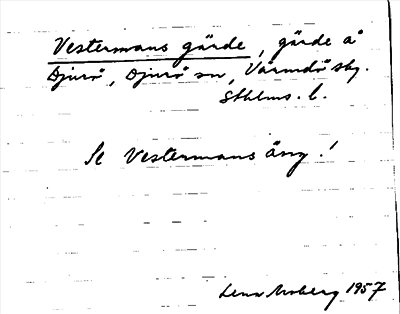 Vestermans gärde, gärde å
Djurö, Djurö sn, Värmdö sky.
Sthlms. l.
Se Vestermans äng!
Lena Moberg 1957